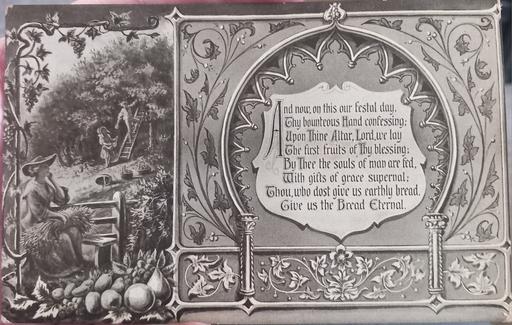 And now, on this our festal day,
Thy bounteous Hand confessing;
Upon Thine Altar, Lord, we lay
The first fruits of Thy blessing;
By Thee the souls of man are fed,
With gifts of grace supernal;
Thou, who dost give us earthly bread,
Give us the Bread Eternal.